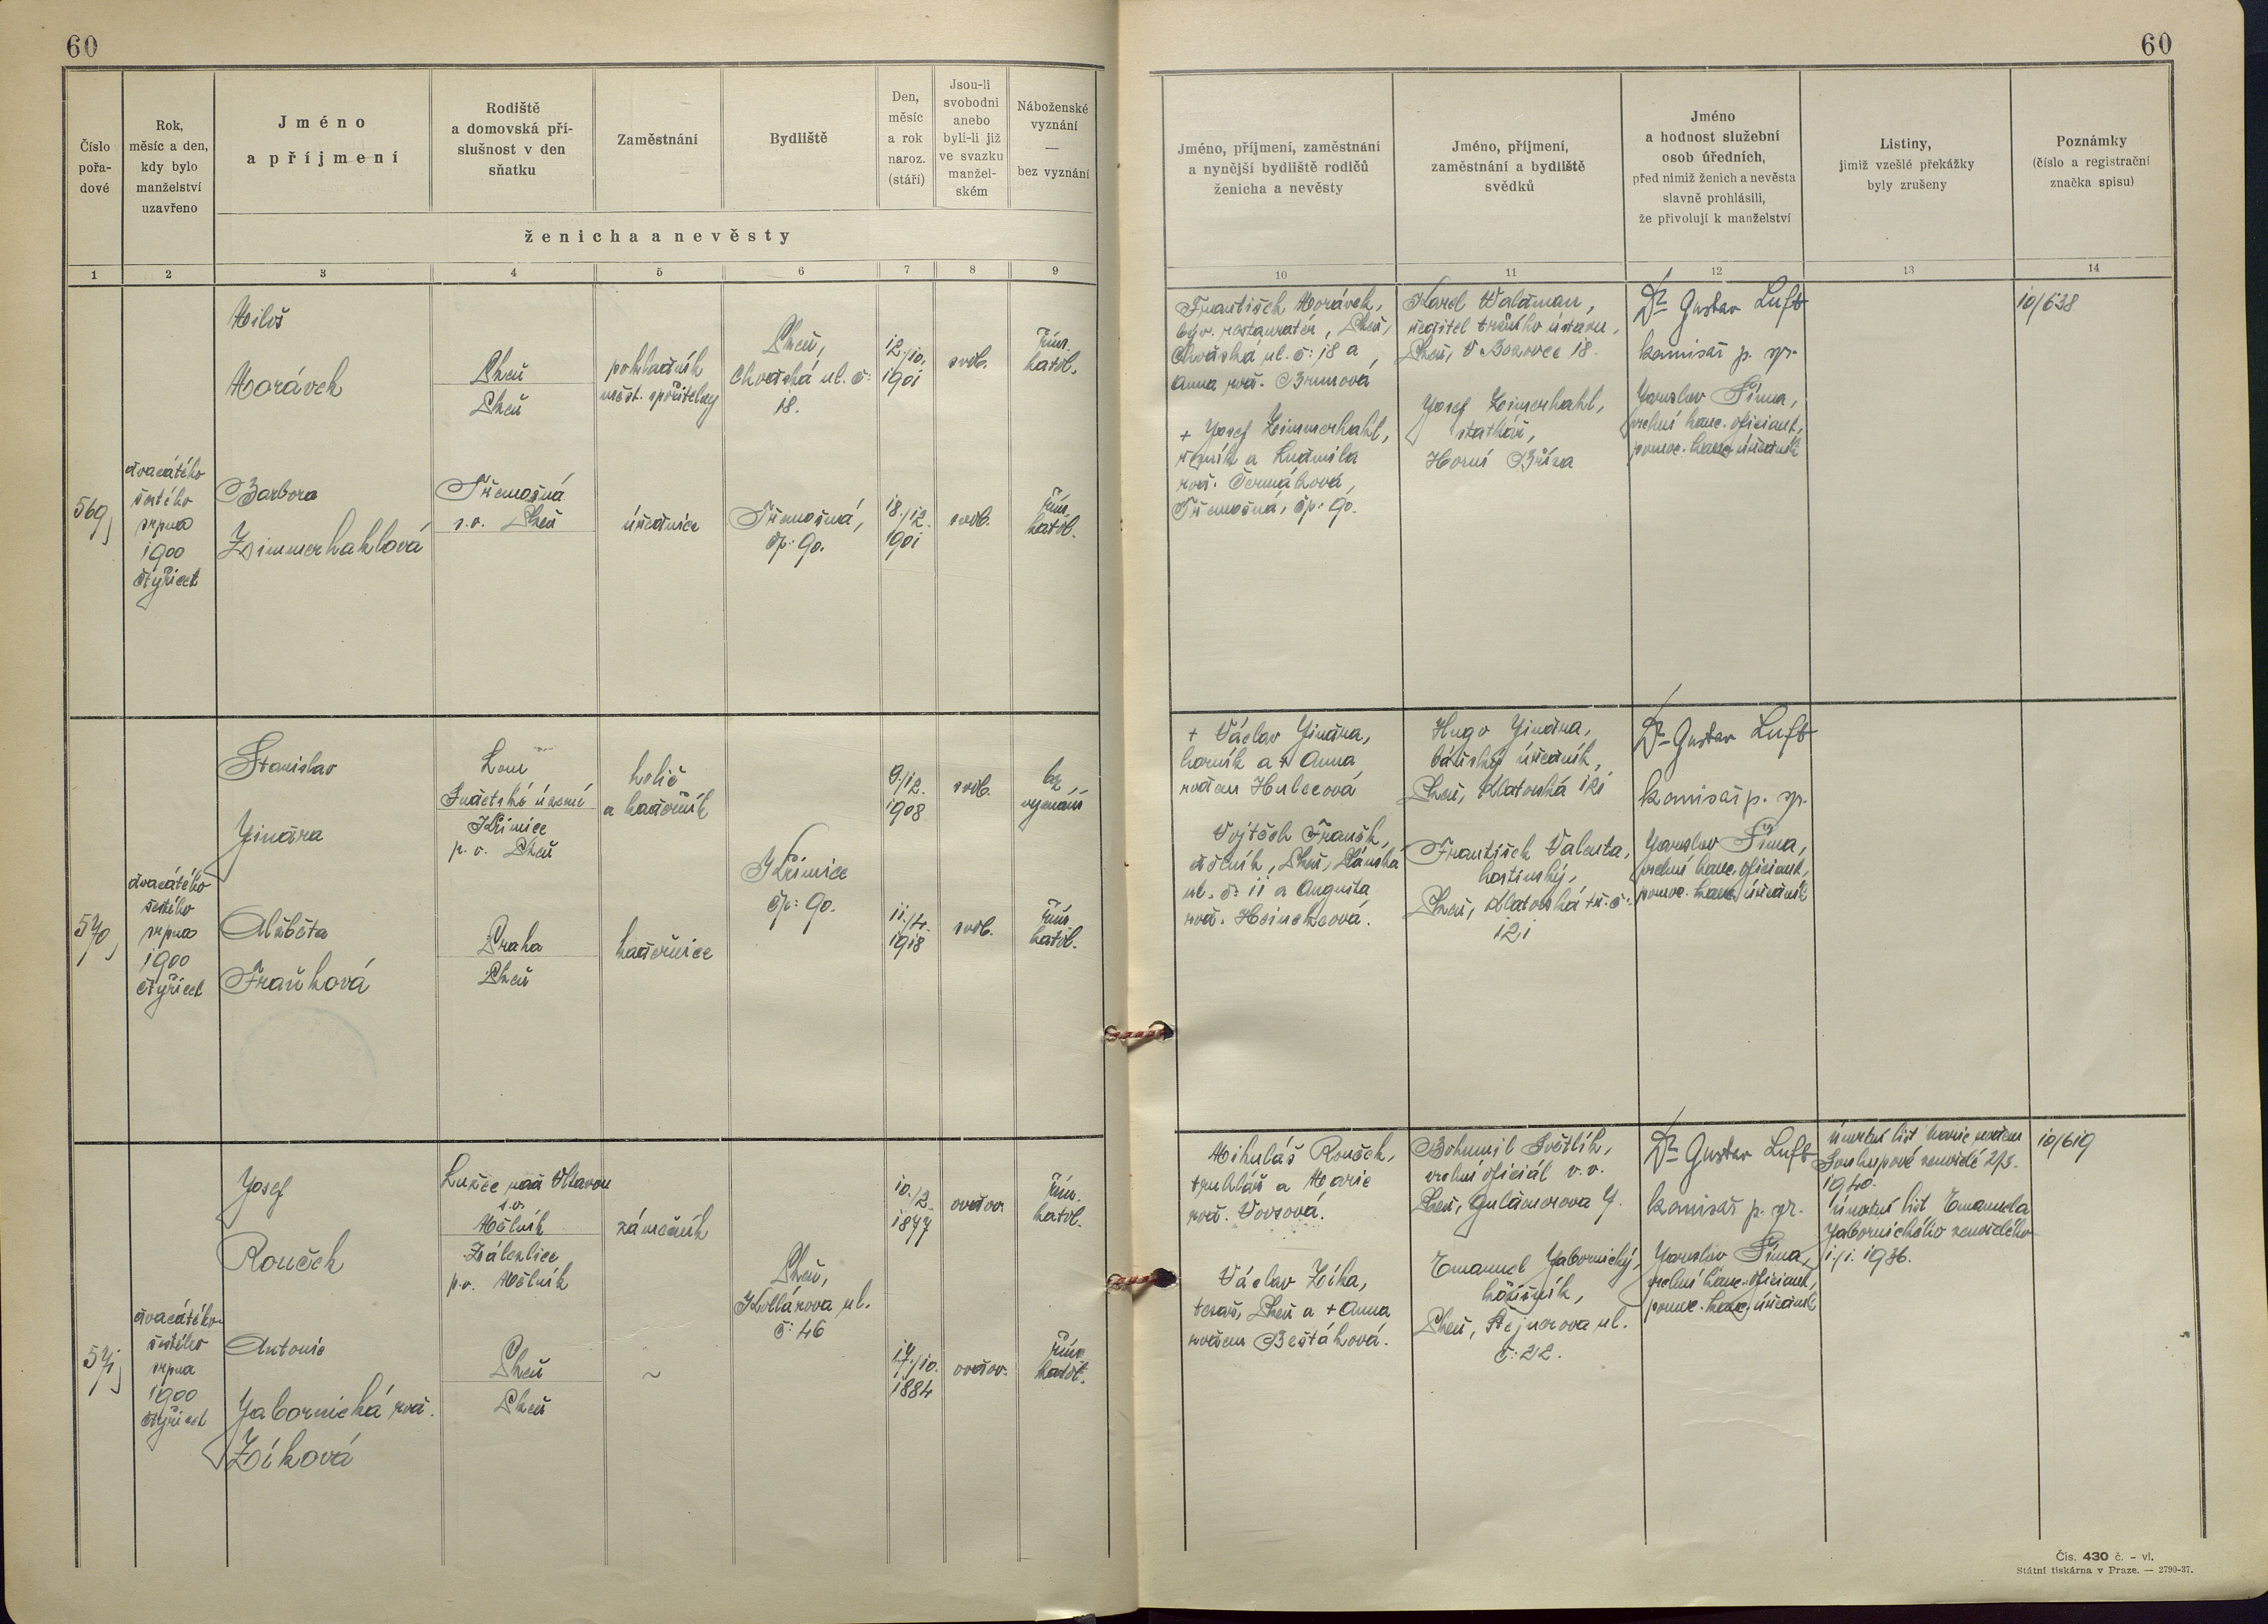 60
60
Číslo
pořa-
dové
Rok,
měsíc a den,
kdy bylo
manželství
uzavřeno
Jméno
a příjmení
Rodiště
a domovská pří-
slušnost v den
sňatku
Zaměstnání
Bydliště
Den,
měsíc
a rok
naroz.
(stáří)
Jsou-li
svobodni
anebo
byli-li již
ve svazku
manžel-
ském
Náboženské
vyznání
—
bez vyznání
ženicha a nevěsty
Jméno, příjmení, zaměstnání
a nynější bydliště rodičů
ženicha a nevěsty
Jméno, příjmení,
zaměstnání a bydliště
svědků
Jméno
a hodnost služební
osob úředních,
před nimiž ženich a nevěsta
slavně prohlásili,
že přivolují k manželství
Listiny,
jimiž vzešlé překážky
byly zrušeny
Poznámky
(číslo a registrační
značka spisu)
1 2 3 4 5 6 7 8 9 10 11 12 13 14
569
dvacátého
šestého
srpna
1900
čtyřicet
Miloš
Morávek
Plzeň
Plzeň
pokladník
měst. spořitelny
Plzeň,
Chodská ul. č:
18.
12./10.
1901
svob.
řím.
katol.
Barbora
Zimmerhaklová
Třemošná
s.o. Plzeň
úřednice
Třemošná,
čp: 90.
18./12.
1901
svob.
řím.
katol.
František Morávek,
býv. restauratér, Plzeň,
Chodská ul. č: 18 a
Anna roz. Brumová
+ Josef Zimmerhakl,
řezník a Ludmila
roz. Čermáková,
Třemošná, čp: 90.
Karel Waldman,
ředitel ústavu,
Plzeň, V Bezovce 18.
Josef Zimerhakl,
statkář,
Horní Bříza
Dr Gustav Luft
komisař p. spr.
Jaroslav Šíma,
vrchní kanc. oficiant,
pomoc. kanc. úředník
10/638
570
dvacátého
šestého
srpna
1900
čtyřicet
Stanislav
Jindra
Lom
Sudetské území
Křimice
p. o. Plzeň
holič
a kadeřník
Křimice
čp: 90.
9./12.
1908
svob.
bez
vyznání
Alžběta
Fraňková
Praha
Plzeň
kadeřnice
11./4.
1918
svob.
řím.
katol.
+ Václav Jindra,
horník a + Anna
rozen Hulcová
Vojtěch Franěk,
dělník, Plzeň, Plánská
ul. č: 11 a Augusta
roz. Heinclcová.
Hugo Jindra,
báňský úředník,
Plzeň, Klatovská 121
František Valenta,
hostinský,
Plzeň, Klatovská tř. č:
121
Dr Gustav Luft
komisař p. spr.
Jaroslav Šíma,
vrchní kanc. oficiant,
pomoc. kanc. úředník
571
dvacátého
šestého
srpna
1900
čtyřicet
Josef
Rouček
Lužec nad Vltavou
s.o.
Mělník
Zálezlice
p.o. Mělník
zámečník
Plzeň,
Kollárova ul.
č: 46
10./2.
1877
ovdov.
řím.
katol.
Antonie
Jabornická roz.
Zíková
Plzeň
Plzeň
~
17./10.
1884
ovdov.
řím.
katol.
Mikuláš Rouček,
truhlář a Marie
roz. Vovsová.
Václav Zíka,
tesař, Plzeň a + Anna
rozen Beštáková.
Bohumil Světlík,
vrchní oficiál v. v.
Plzeň, Guldenerova 7.
Emanuel Jabornický,
Plzeň, Stejnerova ul.
č: 22.
Dr Gustav Luft
komisař p. spr.
Jaroslav Šíma,
vrchní kanc. oficiant,
pomoc. kanc. úředník
úmrtní list Marie rozen
Soukupové zemřelé 2/3.
1940.
úmrtní list Emanuela
Jabornického zemřelého
1./1. 1936.
10/619
Čís. 430 č. – vl.
Státní tiskárna v Praze. — 2790-37.